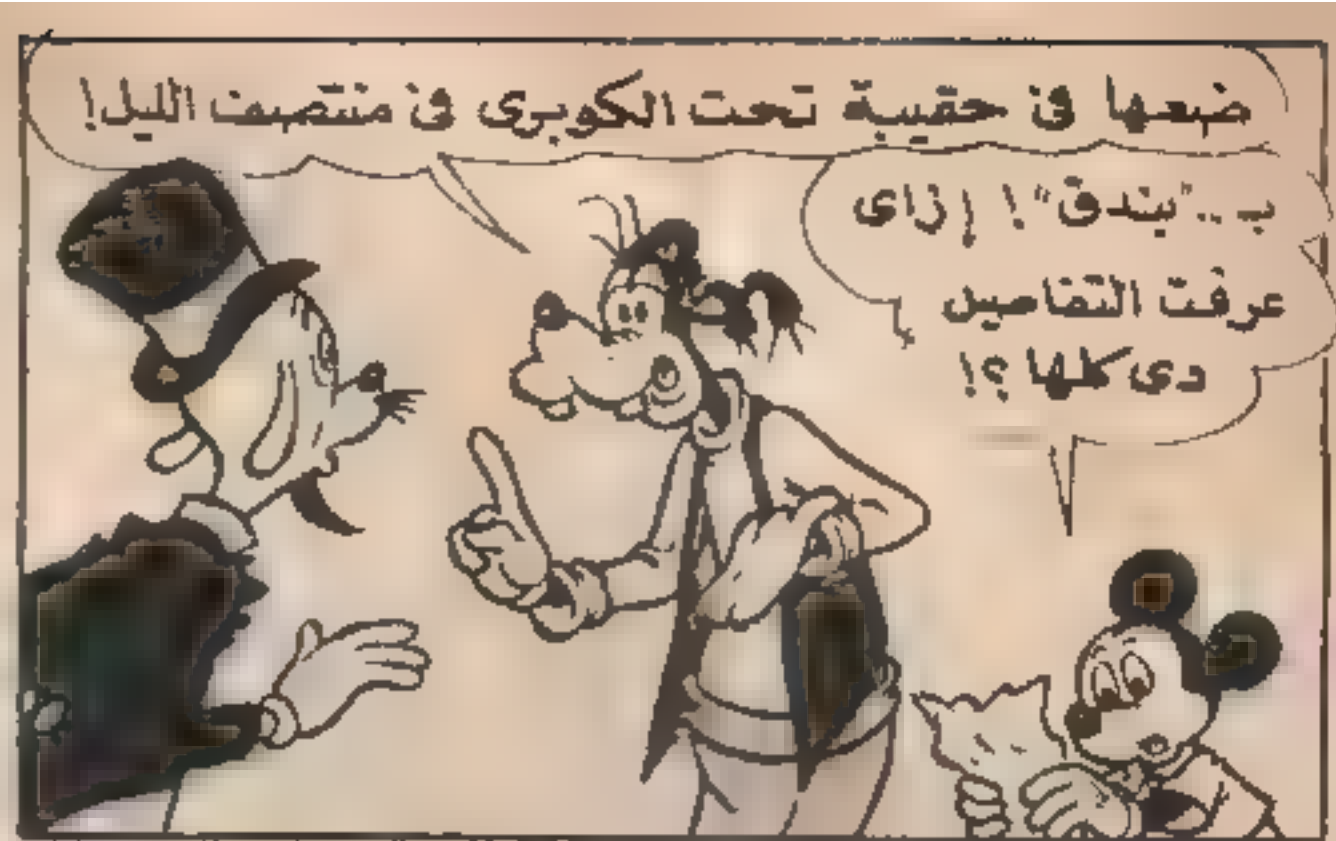 ضعها فى حقيبة تحت الكوبرى فى منتصف الليل!
ب.. "بندق"! إزاى
عرفت التفاصيل
دى كلها؟!